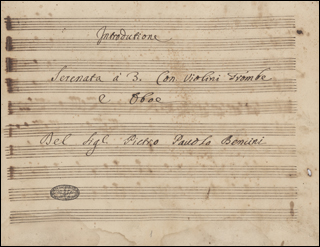 Introdutione
Serenata à 3. Con Violini Trombe
e Oboe
Del Sig.r Pietro Pauolo Bencini